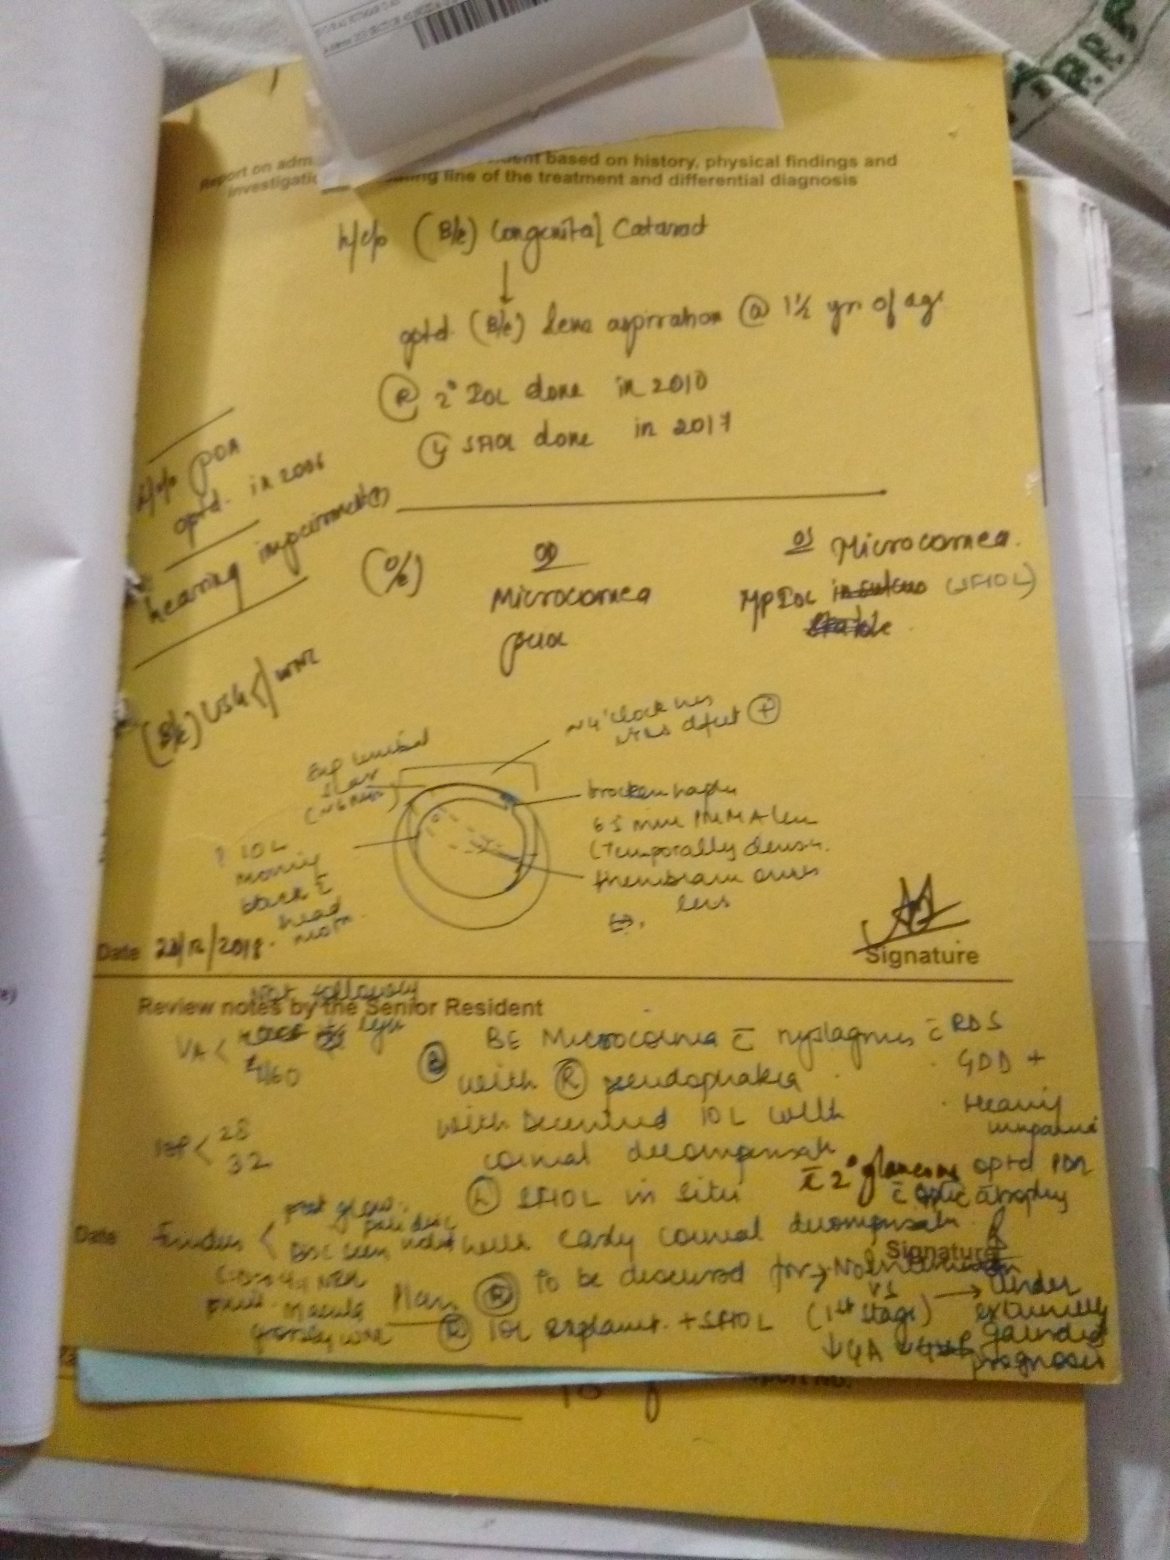 Report on adm
ent based on history, physical findings and
investigatio
ing line of the treatment and differential diagnosis
h/c/o (B/e) Congenital Cataract
↓
optd. (B/e) lens aspiration @ 1½ yr. of age
(R) 2° IOL done in 2010
(L) SFIOL done in 2017
h/o PDA
optd. in 2006
hearing impairment (+)
(B/e) USG < WNL
(O/E)
OD
Microcornea
PCIOL
OS Microcornea.
MPIOL in sulcus (SFIOL)
stable
~4 'clock hrs
iris defect (+)
Sup limbal
scar
(~6mm)
broken haptic
6.5 mm PMMA len
(Temporally densr.
membrane over
lens
(+).
? IOL
moving
back c̄
head
motn.
Date 20/12/2018.
Signature
Review notes by the Senior Resident
Not following
light
VA <
4/60
IOP < 28
32
BE Microcornea c̄ nystagmus c̄ RDS
with (R) pseudophakia
GDD +
with Decentred IOL with
Hearing
impaired
corneal decompensatn
c̄ 2° glaucoma
optd PDA
(L) SFIOL in situ
c̄ Optic atrophy
with early corneal decompensatn.
Date
Signature
Fundus <
post glow.
pale disc
Disc seen
Macula
grossly WNL
Plan (B) To be discussed for → No Intervention
vs
(R) IOL explant. + SFIOL (1st stage) → Under
↓GA
extremely
guarded
prognosis